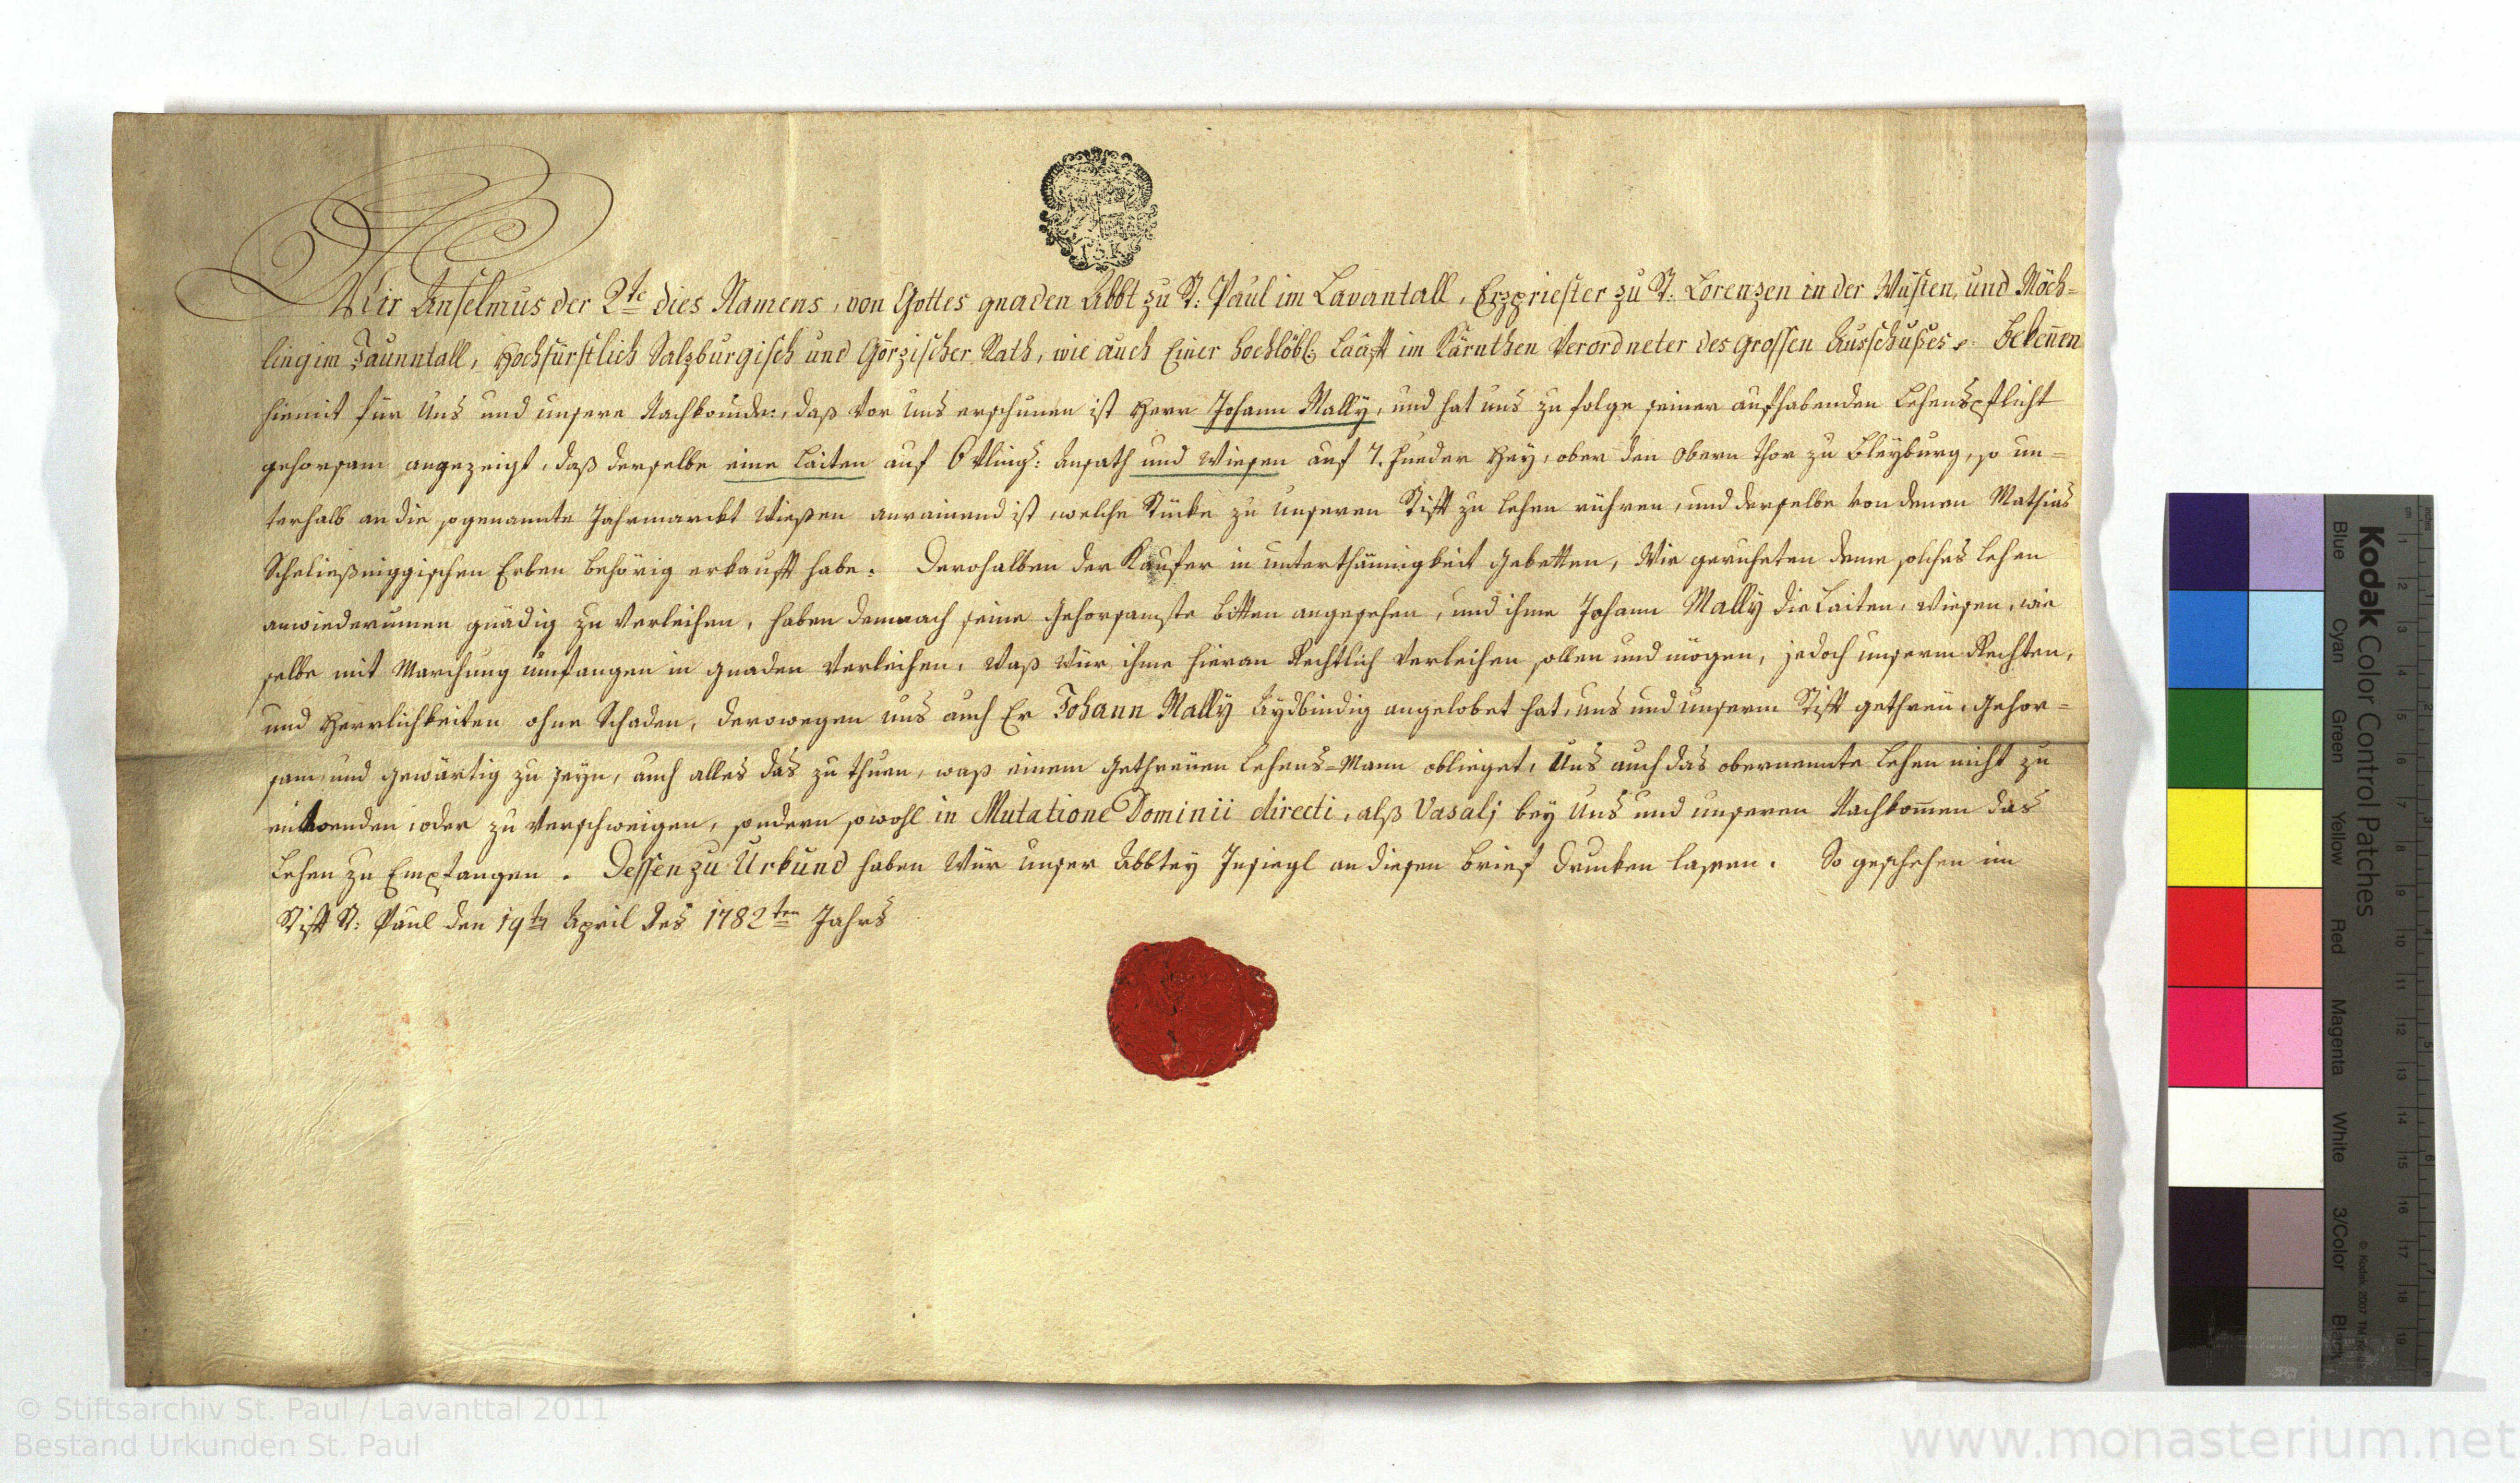 15.K
Wir Anselmus der 2te dies Namens, von Gottes gnaden Abbt zu St: Paul im Lavantall, Erzpriester zu St: Lorenzen in der Wüsten, und Möch=
ling im Jaunntall, Hochfürstlich Salzburgisch und Görzischer Rath, wie auch Einer hochlöbl: Laafft im Kärnthen Verordneter des grossen Ausschußes Bekennen
hiemit für Uns und unsere Nachkommde:, daß vor Uns erschinen ist Herr Johann Mally, und hat uns zu folge seiner aufhabenden Lehenspflicht
gehorsam angezeigt, daß derselbe eine Laiten auf Vtling: Ansath und Wiesen auf 7. Fueder Hey, ober den Obern Thor zu Bleyburg, so un=
terhalb an die sogenannte Jahrmarckt Wießen anrainend ist, welche Stücke zu Unseren Stift zu Lehen rühren, und derselbe von denen Mathias
Scheließniggischen Erben behörig erkaufft habe. Derohalben der Kaufer in unterthännigkeit gebetten, Wir geruheten deme solches Lehen
anwiederumen gnädig zu verleihen, haben demnach seine gehorsamste bitten angesehen, und ihme Johann Mally die Laiten, Wiesen, wie
selbe mit Marchung umfangen in gnaden verleihen, Waß Wür ihme hieran Rechtlich verleihen sollen und mögen, jedoch unserm Rechten,
und Herrlichkeiten ohne Schaden, derowegen uns auch Er Johann Mally Aydbindig angelobet hat, uns und unserm Stift gethreu, gehor=
sam, und gewärtig zu seyn, auch alles das zu thuen, waß einem gethreuen Lehens=Mann oblieget, Uns auch das obernennte Lehen nicht zu
entwenden, oder zu verschweigen, sondern sowohl in Mutatione Dominii directi, alß Vasalj bey Uns und unseren Nachkommen das
Lehen zu Empfangen. Dessen zu Urkund haben Wür Unser Abbtey Insiegl an diesen brief drucken lassen. So geschehen im
Stift St: Paul den 19ten April des 1782ten Jahrs
Kodak Color Control Patches
Blue Cyan Green Yellow Red Magenta White 3/Color Black
© Kodak 2007
© Stiftsarchiv St. Paul / Lavanttal 2011
Bestand Urkunden St. Paul
www.monasterium.net